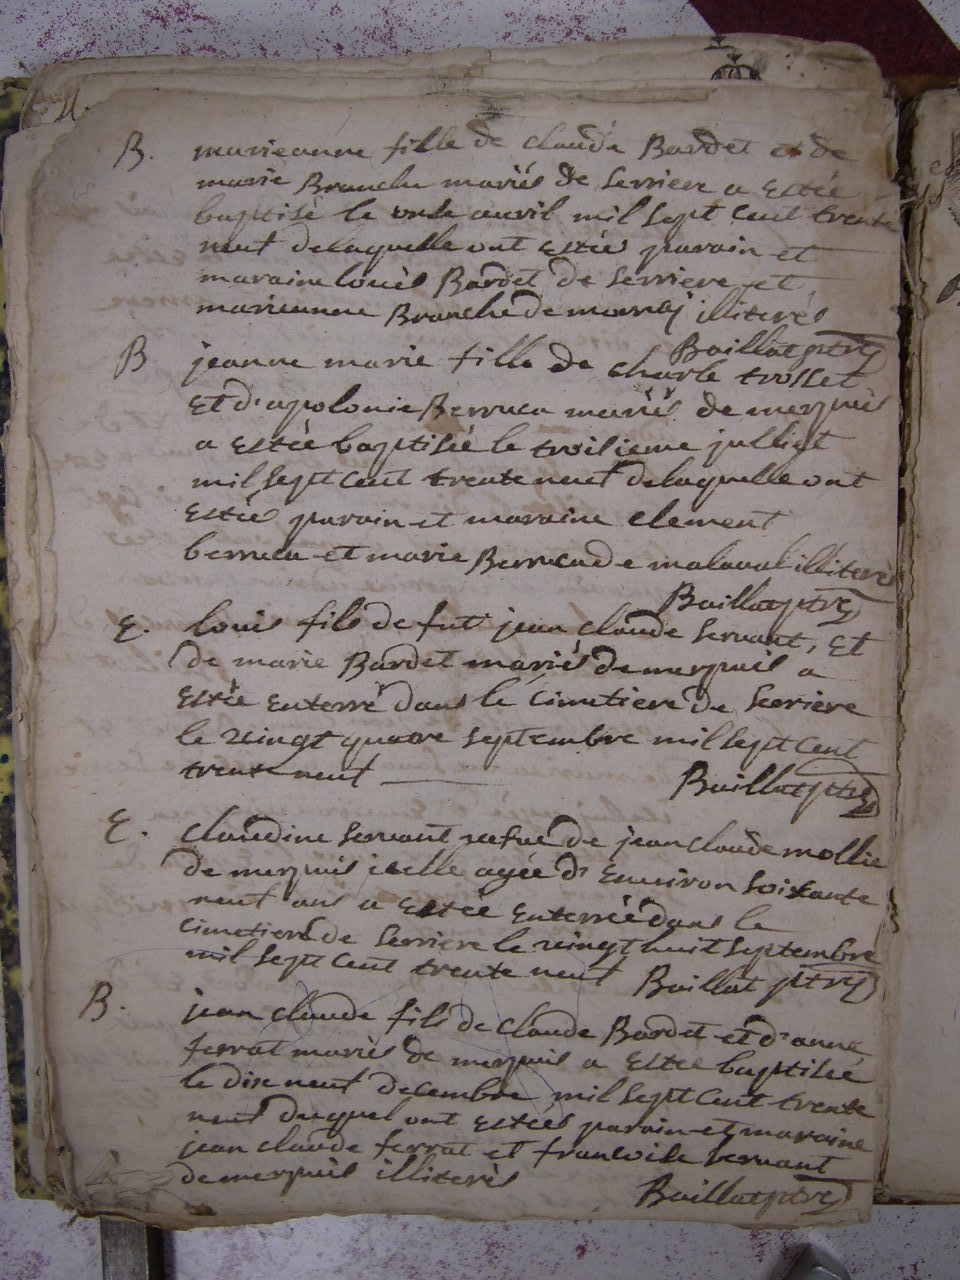 B. marieanne fille de claude Bardet et de
marie Branche mariés de serriere a estée
baptisé le onse auril mil sept cent trente
neuf delaquelle ont estés parain et
maraine louis Bardet de serriere et
marieanne Branche de mornaÿ illiterés
Baillat ptre
B jeanne marie fille de charle trosset
et d'apolonie Berruca mariés de merpuis
a estée baptisée le troisieme julliet
mil sept cent trente neuf delaquelle ont
estés parain et maraine clement
berruca et marie Berruca de malaval illiterés
Baillat ptre
E. louis fils de fut jean claude seruant, et
de marie Bardet mariés de merpuis a
estée enterré dans le cimetiere de serriere
le vingt quatre septembre mil sept cent
trente neuf
Baillat ptre
E. claudine seruant vefue de jean claude mollie
de merpuis icelle agée d'enuiron soixante
neuf ans a estée enterrée dans le
cimetiere de serriere le vingt huit septembre
mil sept cent trente neuf Baillat ptre
B. jean claude fils de claude Bardet et d'anne
ferrat mariés de merpuis a estée baptisée
le dixneuf decembre mil sept cent trente
neuf duquel ont estées parain et maraine
jean claude ferrat et francoise seruant
de merpuis illiterés
Baillat ptre